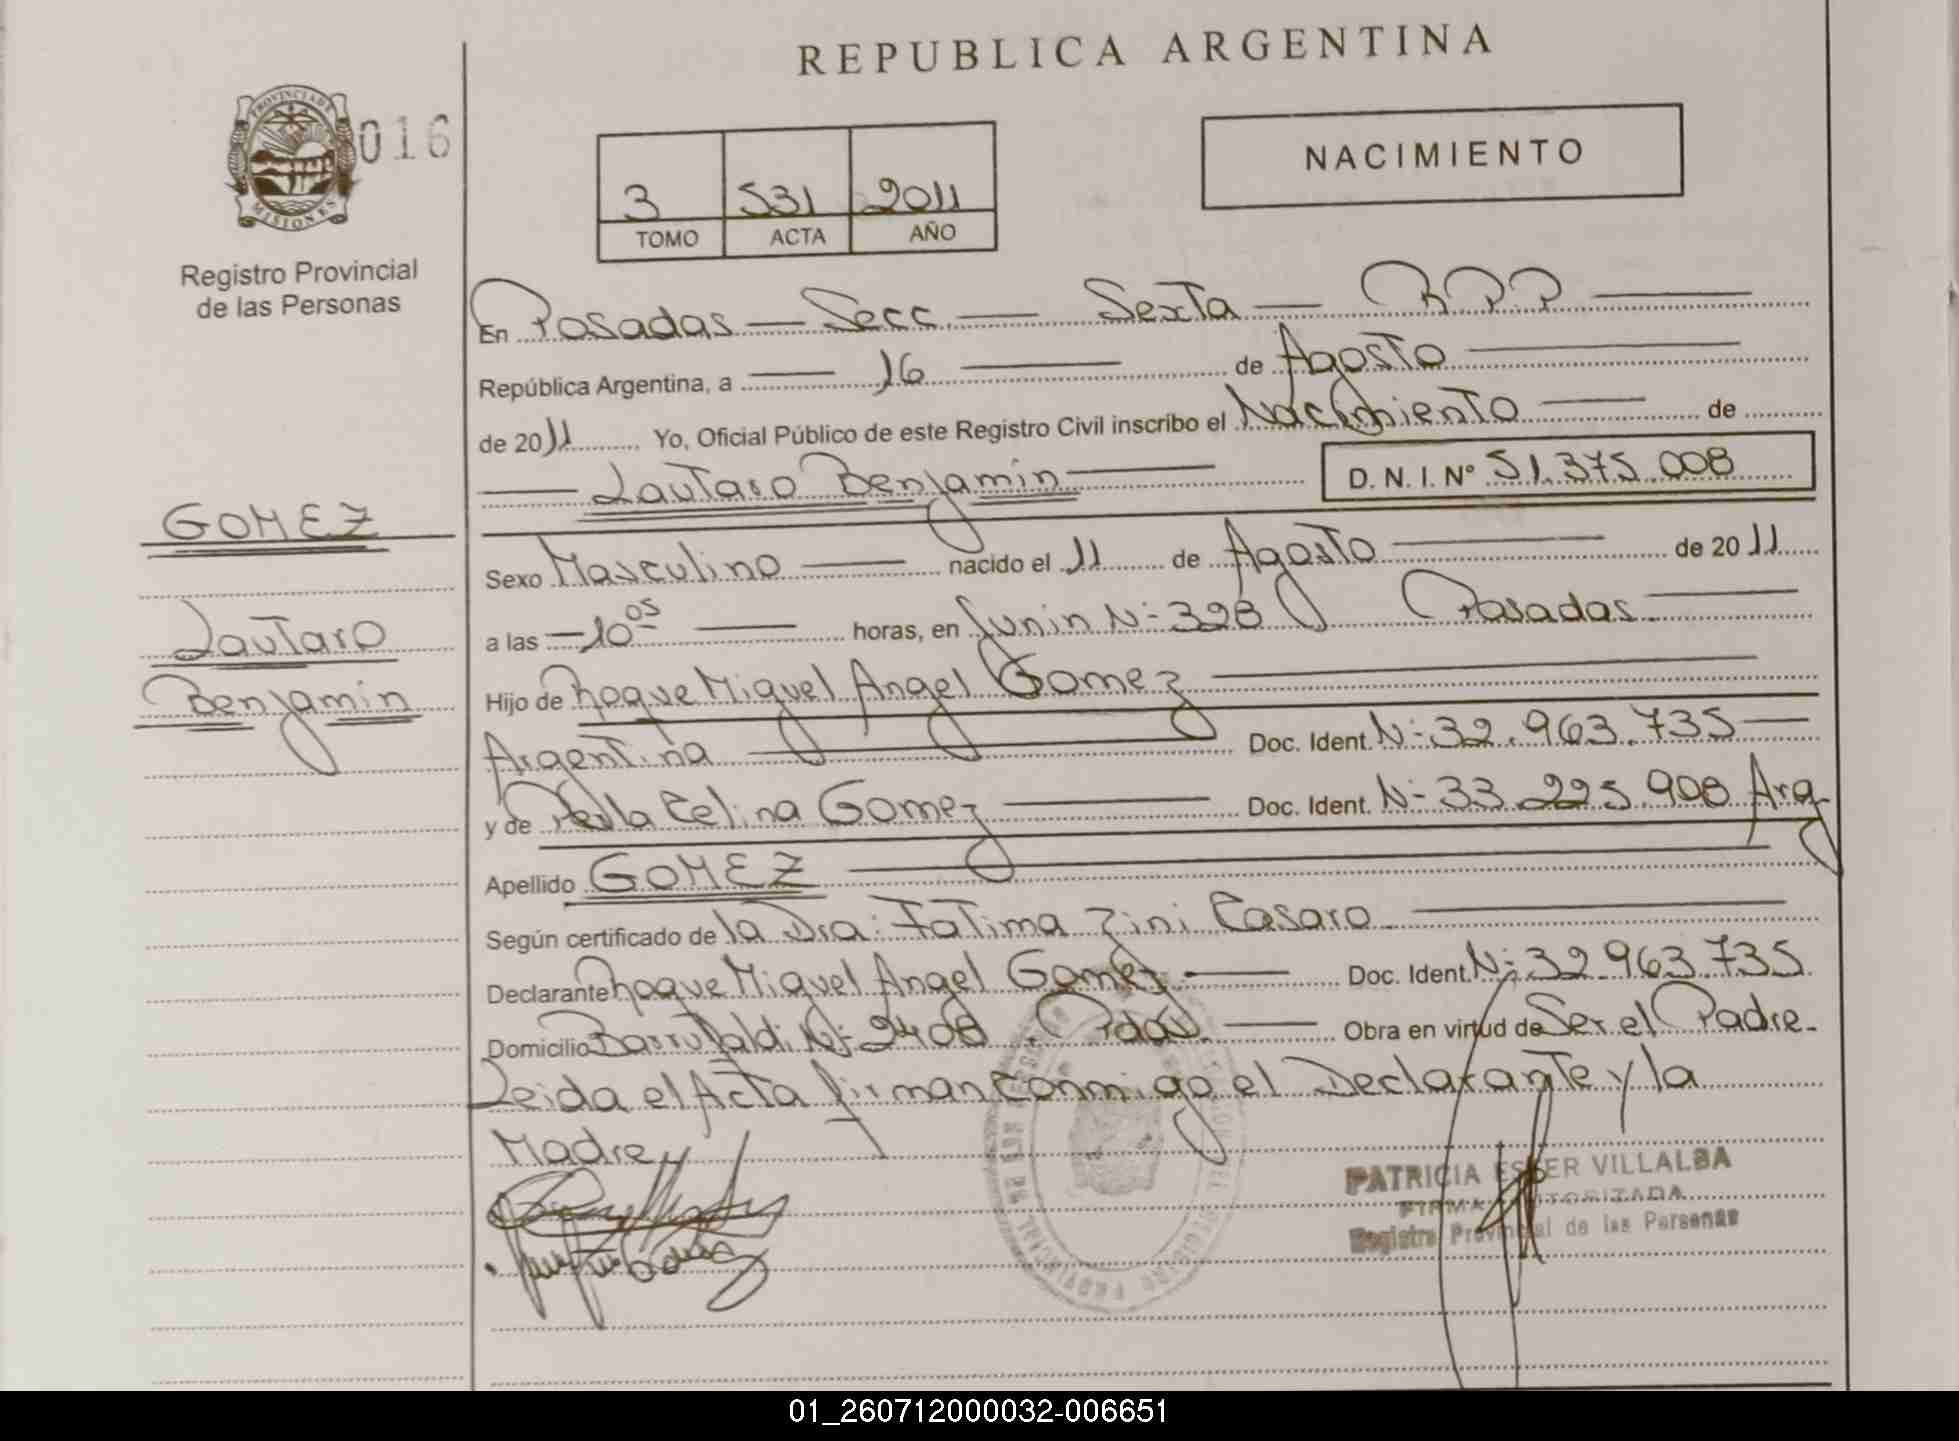 REPUBLICA ARGENTINA
PROVINCIA DE
MISIONES
016
Registro Provincial
de las Personas
3 531 2011
TOMO ACTA AÑO
NACIMIENTO
En Posadas — Secc — Sexta — R P P
República Argentina, a — 16 — de Agosto
de 2011 Yo, Oficial Público de este Registro Civil inscribo el Nacimiento — de
— Lautaro Benjamin — D. N. I. Nº 51.375.008
GOMEZ
Lautaro
Benjamin
Sexo Masculino — nacido el 11 de Agosto — de 2011
a las — 10 05 — horas, en Junin N- 328 Posadas —
Hijo de Roque Miguel Angel Gomez —
Argentina — Doc. Ident. N- 32.963.735 —
y de Perla Celina Gomez — Doc. Ident. N- 33 225 908 Arg
Apellido GOMEZ —
Según certificado de la Dra: Fatima Zini Casaro —
Declarante Roque Miguel Angel Gomez — Doc. Ident. N- 32 963 735
Domicilio N- 2408 Pdas. — Obra en virtud de Ser el Padre.
Leida el Acta firman conmigo el Declarante y la
Madre
PATRICIA ESTER VILLALBA
FIRMA AUTORIZADA
Registro Provincial de las Personas
01_260712000032-006651